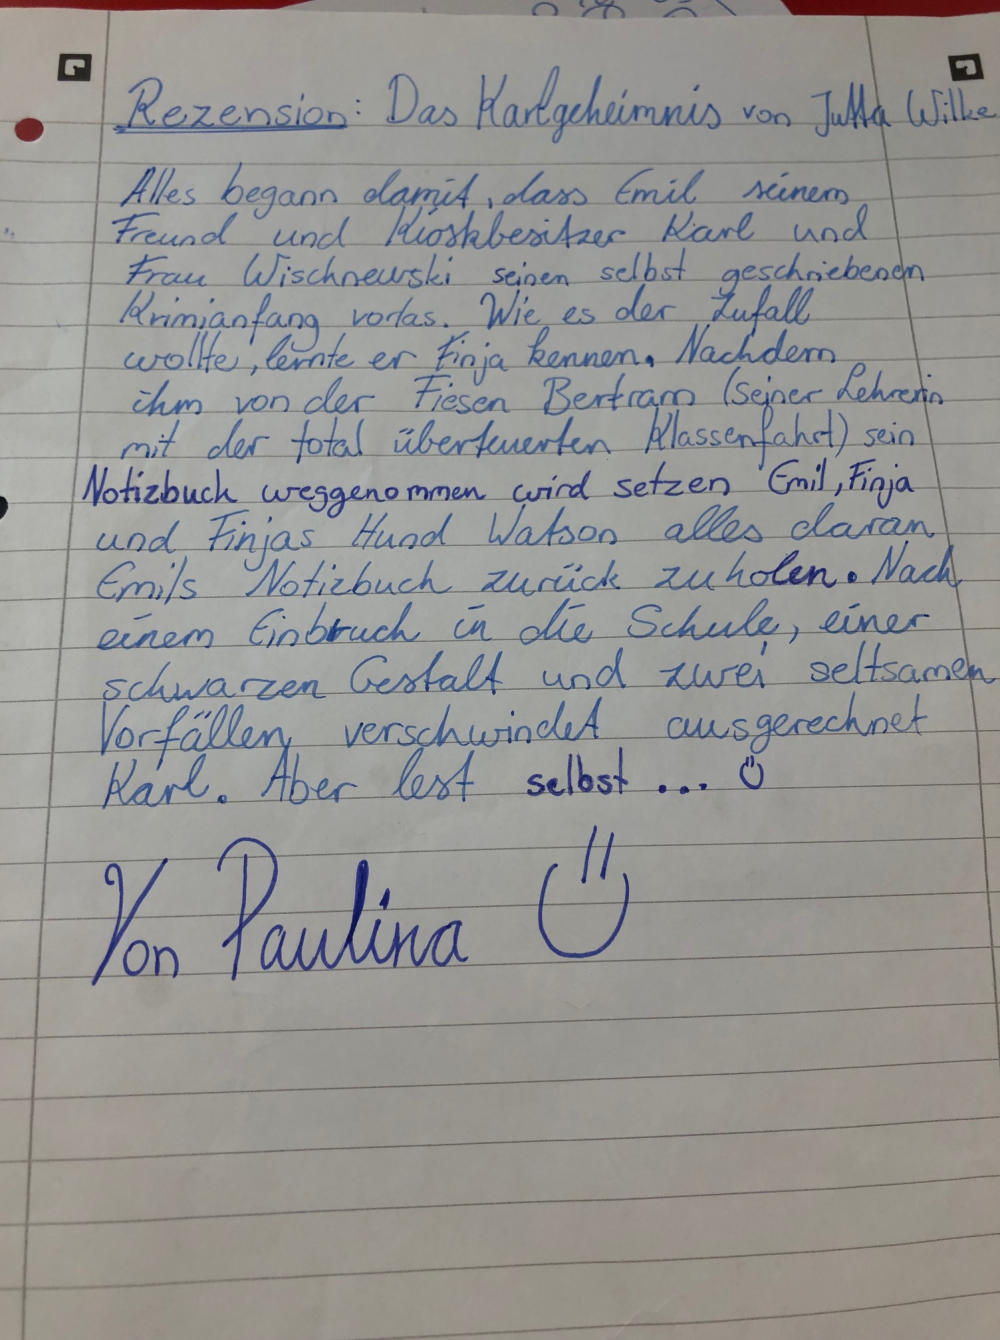 Rezension: Das Karlgeheimnis von Jutta Wilke
Alles begann damit, dass Emil seinem
Freund und Kioskbesitzer Karl und
Frau Wischnewski seinen selbst geschriebenen
Krimianfang vorlas. Wie es der Zufall
wollte, lernte er Finja kennen. Nachdem
ihm von der Fiesen Bertram (seiner Lehrerin
mit der total überteuerten Klassenfahrt) sein
Notizbuch weggenommen wird setzen Emil, Finja
und Finjas Hund Watson alles daran
Emils Notizbuch zurück zu holen. Nach
einem Einbruch in die Schule, einer
schwarzen Gestalt und zwei seltsamen
Vorfällen verschwindet ausgerechnet
Karl. Aber lest selbst ...
Von Paulina